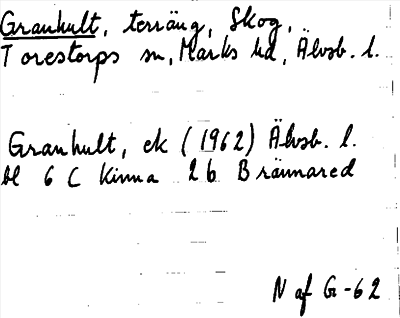 Granhult, terräng, Skog,
Torestorps sn, Marks hd, Älvsb. l.
Granhult, ek (1962) Älvsb. l.
bl 6 C Kinna 2 b Brännared
N af G-62